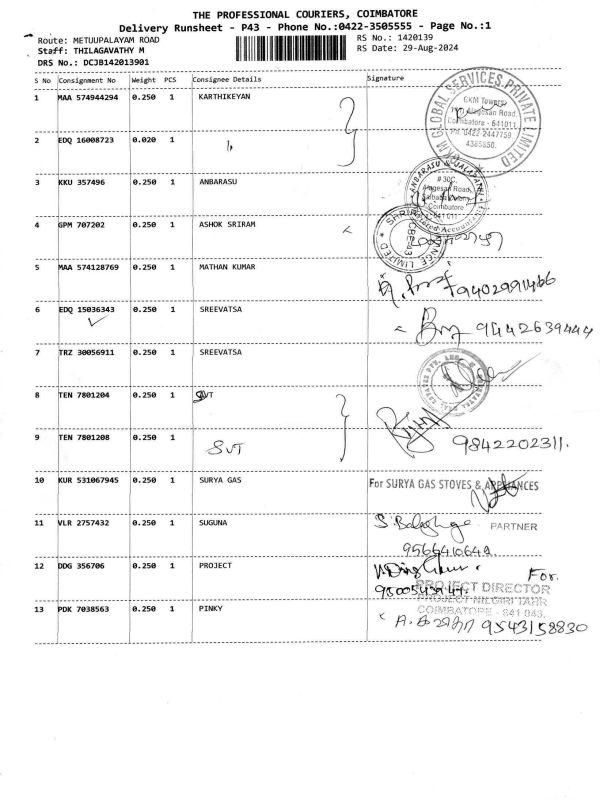 THE PROFESSIONAL COURIERS, COIMBATORE
Delivery Runsheet - P43 - Phone No.:0422-3505555 - Page No.:1
Route: METUUPALAYAM ROAD RS No.: 1420139
Staff: THILAGAVATHY M RS Date: 29-Aug-2024
DRS No.: DCJB142013901
S No Consignment No Weight PCS Consignee Details Signature
1 MAA 574944294 0.250 1 KARTHIKEYAN
GLOBAL SERVICES PRIVATE LIMITED
GKM Towers
Alagesan Road,
Coimbatore - 641011
PH: 0422-2447759
4385850.
2 EDQ 16008723 0.020 1
3 KKU 357496 0.250 1 ANBARASU
ANBARASU & JALAPATHI
# 30C,
Alagesan Road,
Saibaba Colony
Coimbatore
641 011
4 GPM 707202 0.250 1 ASHOK SRIRAM
LIMITED
5 MAA 574128769 0.250 1 MATHAN KUMAR
9402991466
6 EDQ 15036343 0.250 1 SREEVATSA
9442639444
7 TRZ 30056911 0.250 1 SREEVATSA
8 TEN 7801204 0.250 1 SVT
9 TEN 7801208 0.250 1 SVT
9842202311.
10 KUR 531067945 0.250 1 SURYA GAS For SURYA GAS STOVES & APPLIANCES
11 VLR 2757432 0.250 1 SUGUNA
PARTNER
12 DDG 356706 0.250 1 PROJECT
For.
PROJECT DIRECTOR
PROJECT NILGIRI TAHR
COIMBATORE - 641 043.
13 PDK 7038563 0.250 1 PINKY
9543158830